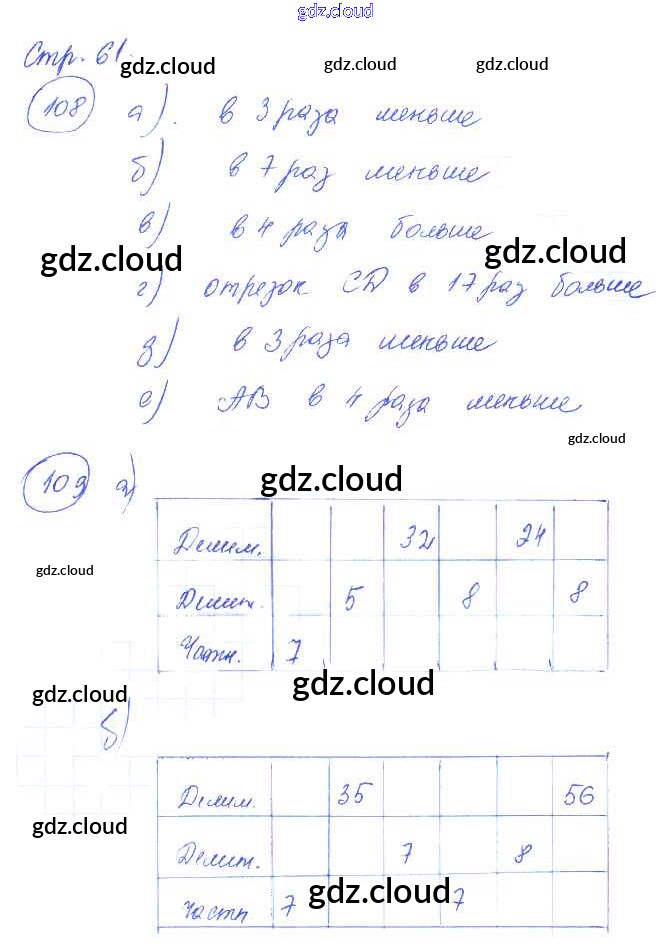 gdz.cloud
Стр. 61.
gdz.cloud gdz.cloud gdz.cloud
108 а). в 3 раза меньше
б) в 7 раз меньше
в) в 4 раза больше
gdz.cloud gdz.cloud
г) отрезок CD в 17 раз больше
д) в 3 раза меньше
е) АВ в 4 раза меньше
gdz.cloud
gdz.cloud
109 а)
Делим. 32 24
gdz.cloud
Делит. 5 8 8
Частн. 7
gdz.cloud gdz.cloud
б)
Делим. 35 56
gdz.cloud
Делит. 7 8
gdz.cloud
Частн 7 7